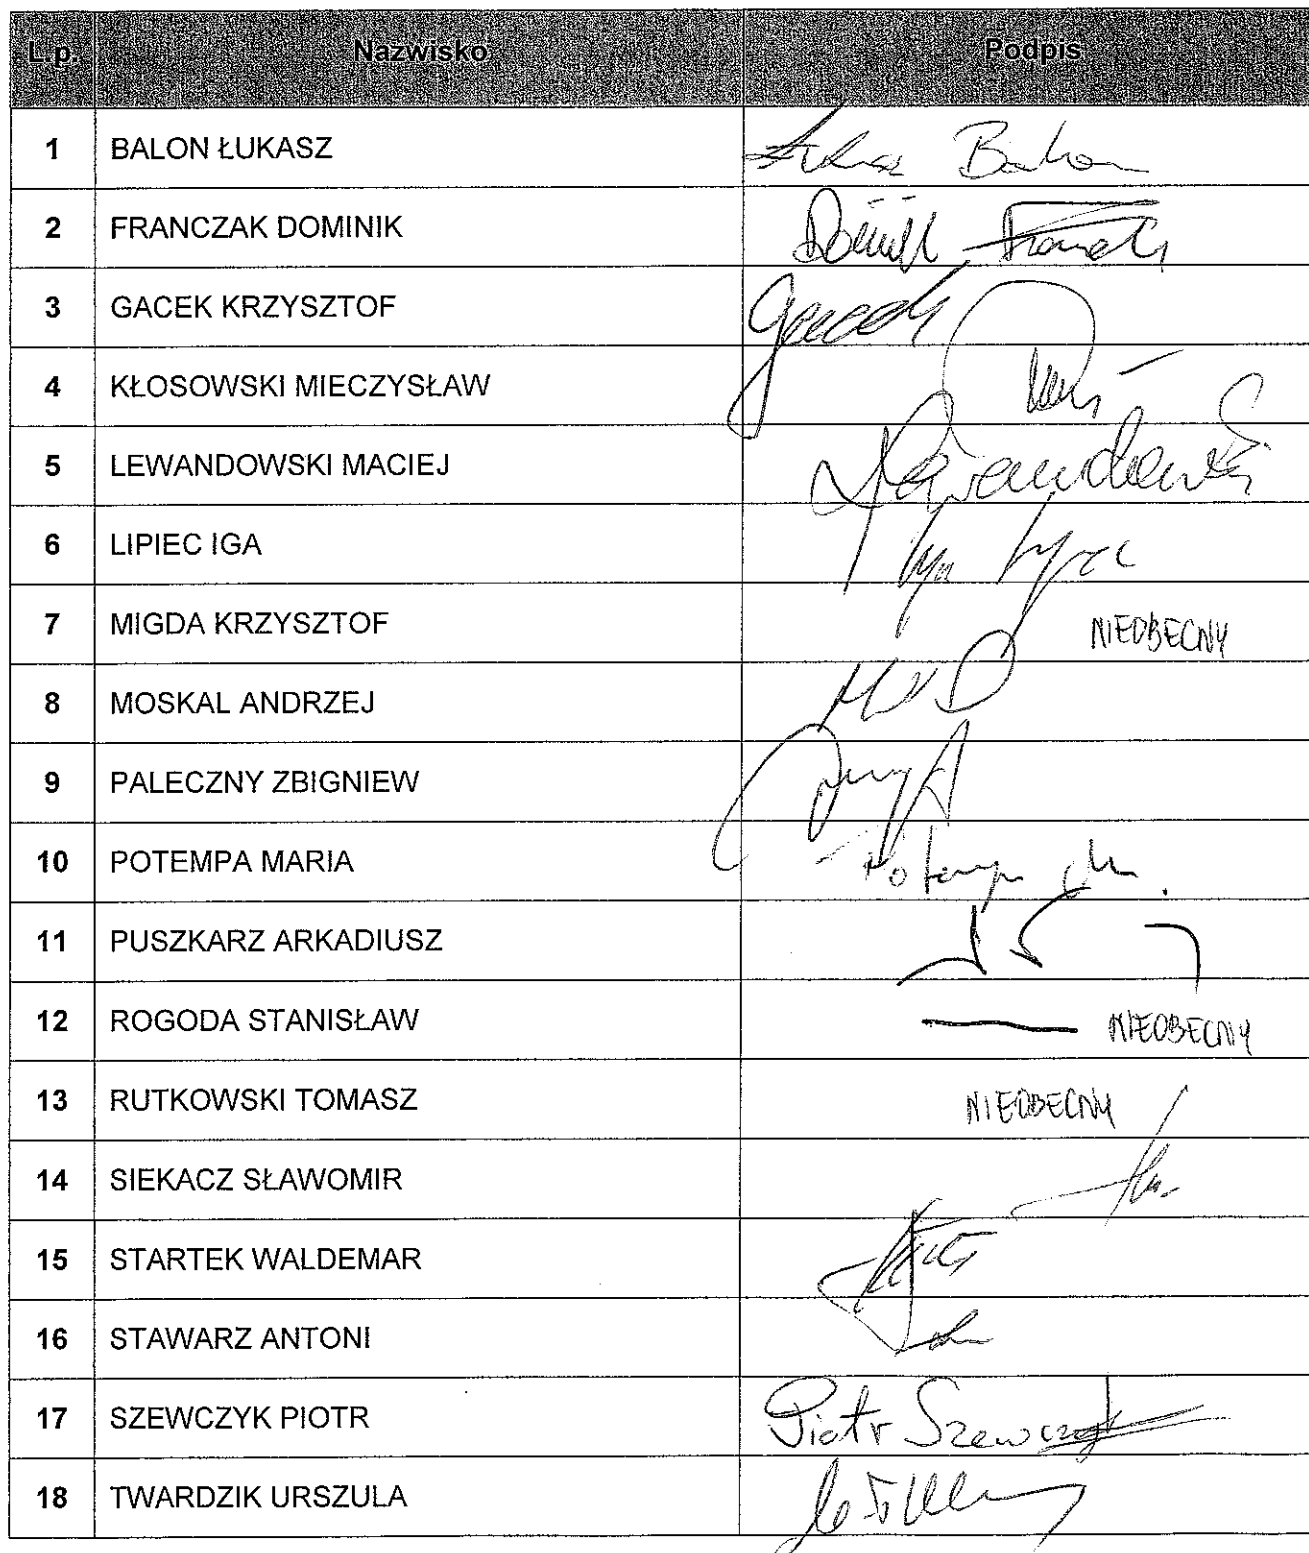 L.p. Nazwisko Podpis
1 BALON ŁUKASZ Łukasz Balon
2 FRANCZAK DOMINIK Dominik Franczak
3 GACEK KRZYSZTOF Gacek
4 KŁOSOWSKI MIECZYSŁAW
5 LEWANDOWSKI MACIEJ Lewandowski
6 LIPIEC IGA Iga Lipiec
7 MIGDA KRZYSZTOF NIEOBECNY
8 MOSKAL ANDRZEJ
9 PALECZNY ZBIGNIEW
10 POTEMPA MARIA Potempa M.
11 PUSZKARZ ARKADIUSZ
12 ROGODA STANISŁAW — NIEOBECNY
13 RUTKOWSKI TOMASZ NIEOBECNY
14 SIEKACZ SŁAWOMIR
15 STARTEK WALDEMAR
16 STAWARZ ANTONI
17 SZEWCZYK PIOTR Piotr Szewczyk
18 TWARDZIK URSZULA